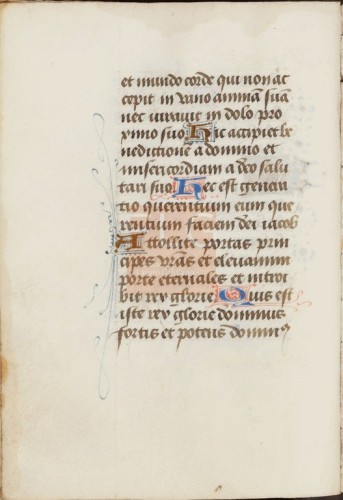 et mundo corde qui non ac
cepit in vano animam suā
nec iuravit in dolo pro
ximo suo Hic accipiet be
nedictionē a domino et
misericordiam a deo salu
tari suo Hec est generā
tio querentium eum que
rentium faciem dei iacob
Attollite portas prin
cipes vr̄as et elevamini
porte eternales et introi
bit rex glorie Quis est
iste rex glorie dominus
fortis et potens dominꝰ